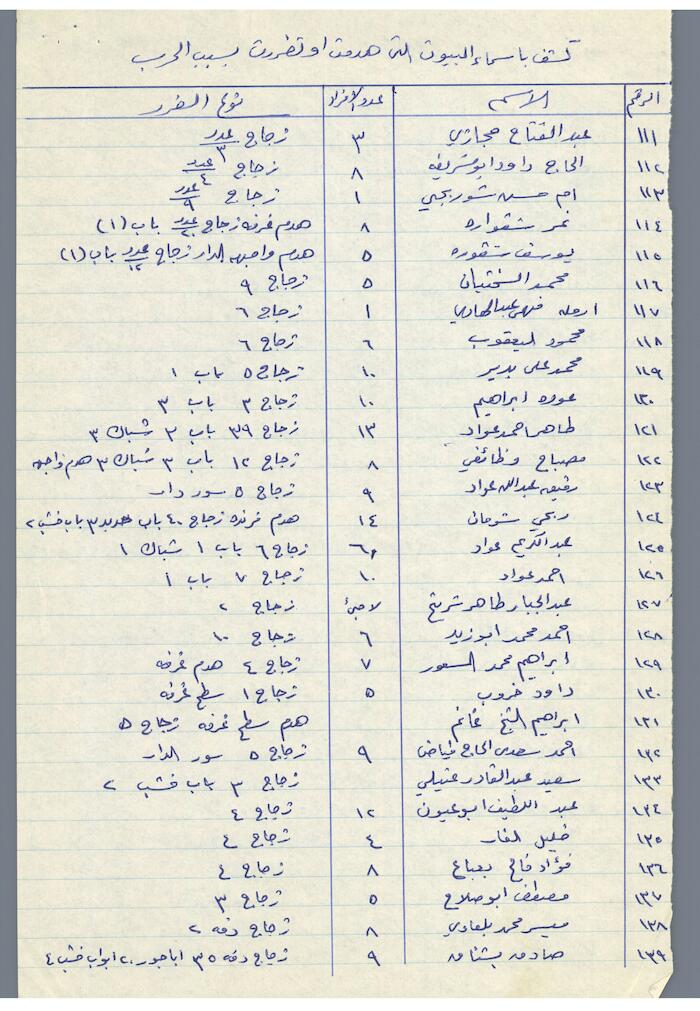 كشف باسماء البيوت التي هدمت او تضررت بسبب الحرب
الرقم الاسم عدد الافراد نوع الضرر
١١١ عبد الفتاح حجازي ٣ زجاج عدد ٣
١١٢ الحاج داود ابو شريفه ٨ زجاج عدد ٤
١١٣ ام حسن شوربجي ١ زجاج عدد ٩
١١٤ نمر شقواره ٨ هدم غرفه زجاج عدد ٢٠ باب (١)
١١٥ يوسف شقوره ٥ هدم واجهه الدار زجاج عدد ١٢ باب (١)
١١٦ محمد السختيان ٥ زجاج ٩
١١٧ ارمله فهمي عبد الهادي ١ زجاج ٦
١١٨ محمود اليعقوب ٦ زجاج ٦
١١٩ محمد علي بدير ١٠ زجاج ٥ باب ١
١٢٠ عوده ابراهيم ١٠ زجاج ٣ باب ٣
١٢١ طاهر احمد عواد ١٣ زجاج ٣٩ باب ٣ شباك ٣
١٢٢ مصباح وظائفي ٨ زجاج ١٢ باب ٣ شباك ٣ هدم واجهه
١٢٣ رفيق عبدالله عواد ٩ زجاج ٥ سور دار
١٢٤ ربحي شومان ١٤ هدم فرنده زجاج ٤٠ باب حديد ٣ باب خشب ٢
١٢٥ عبد الكريم عواد ٦ زجاج ٦ باب ١ شباك ١
١٢٦ احمد عواد ١٠ زجاج ٧ باب ١
١٢٧ عبد الجبار طاهر شريتح لاجئ زجاج ٢
١٢٨ احمد محمد ابو زيد ٦ زجاج ١٠
١٢٩ ابراهيم محمد السعور ٧ زجاج ٤ هدم غرفه
١٣٠ داود خروب ٥ زجاج ١ سطح غرفه
١٣١ ابراهيم الشيخ غانم هدم سطح غرفه زجاج ٥
١٣٢ احمد سعدي الحاج فياض ٩ زجاج ٥ سور الدار
١٣٣ سعيد عبد القادر عتيلي زجاج ٣ باب خشب ٢
١٣٤ عبد اللطيف ابو عيون ١٢ زجاج ٤
١٣٥ خليل الفار ٤ زجاج ٤
١٣٦ فؤاد فالح بعباع ٨ زجاج ٤
١٣٧ مصطفى ابو صلاح ٥ زجاج ٣
١٣٨ ميسر محمد بلعاوي ٨ زجاج دفه ٢
١٣٩ صادق بشناق ٩ زجاج دفه ٣٥ اباجور ٢٠ ابواب خشب ٤